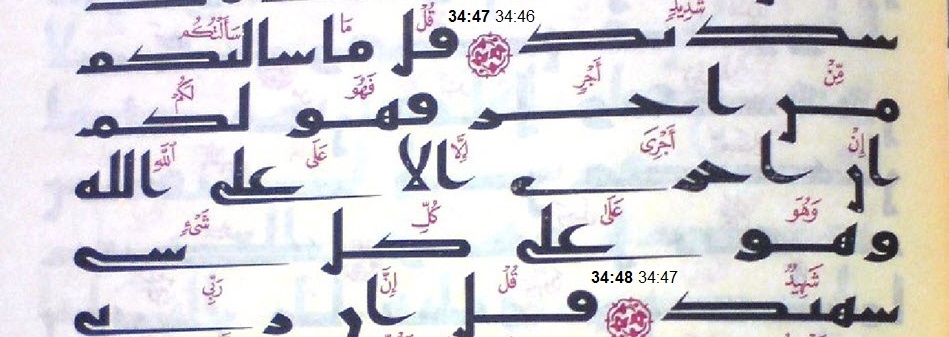 شَدِيدٍ 34:46 34:47 قُلْ مَا سَأَلْتُكُم
سدىد ڡل ما سالىكم
مِّنْ أَجْرٍ فَهُوَ لَكُمْ
مں احر ڡهو لكم
إِنْ أَجْرِىَ إِلَّا عَلَى ٱللَّهِ
اں احرى الا على الله
وَهُوَ عَلَىٰ كُلِّ شَىْءٍ
وهو على كل سى
شَهِيدٌ 34:47 34:48 قُلْ إِنَّ رَبِّى
سهىد ڡل اں رٮى